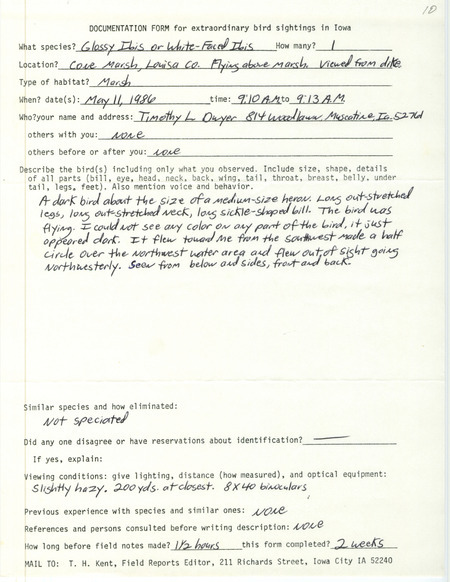 10
DOCUMENTATION FORM for extraordinary bird sightings in Iowa
What species? Glossy Ibis or White-Faced Ibis How many? 1
Location? Cone Marsh, Louisa Co. Flying above marsh. Viewed from dike
Type of habitat? Marsh
When? date(s): May 11, 1986 time: 9:10 A.M. to 9:13 A.M.
Who? your name and address: Timothy L. Dwyer 814 Woodlawn Muscatine, Ia. 52761
others with you: none
others before or after you: none
Describe the bird(s) including only what you observed. Include size, shape, details
of all parts (bill, eye, head, neck, back, wing, tail, throat, breast, belly, under
tail, legs, feet). Also mention voice and behavior.
A dark bird about the size of a medium-size heron. Long out-stretched
legs, long out-stretched neck, long sickle-shaped bill. The bird was
flying. I could not see any color on any part of the bird, it just
appeared dark. It flew toward me from the southwest made a half
circle over the northwest water area and flew out of sight going
Northwesterly. Seen from below and sides, front and back.
Similar species and how eliminated:
Not speciated
Did any one disagree or have reservations about identification? —
If yes, explain:
Viewing conditions: give lighting, distance (how measured), and optical equipment:
Slightly hazy. 200 yds. at closest. 8X40 binoculars
Previous experience with species and similar ones: none
References and persons consulted before writing description: none
How long before field notes made? 1 1/2 hours this form completed? 2 weeks
MAIL TO: T. H. Kent, Field Reports Editor, 211 Richards Street, Iowa City IA 52240